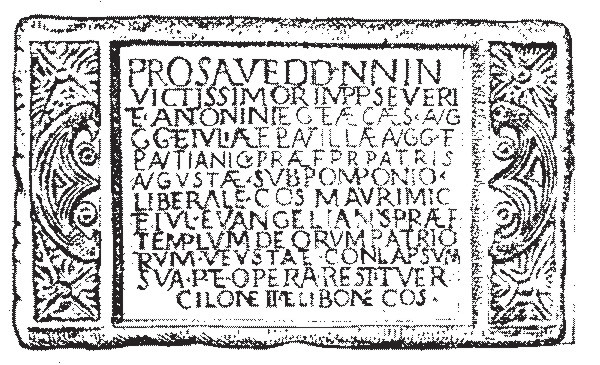 PROSAVEDD·NNIN
VICTISSIMOR IMPP SEVERI
E·ANTONINI E GEÆ CÆS·AVG
G GETIVLIÆ E PAVTILLÆ AVGG·E
PAVTIANI PRÆF PR PATRIS
AVGVSTÆ·SVB POMPONIO·
LIBERALE·COS MAVRIMIC
EIVL·EVANGELIANVSPRÆF
TEMPLVM DEORVM PATRIO
RVM·VEVSTAE CONLAPSVM
SVA·PE·OPERA RESTITVER
CILONE LIBONE COS·